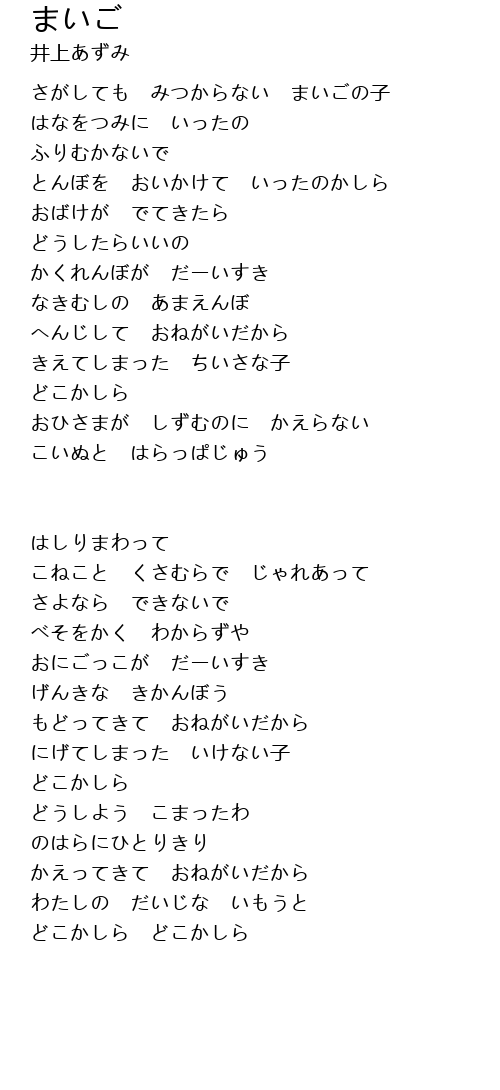 まいご
井上あずみ
さがしても　みつからない　まいごの子
はなをつみに　いったの
ふりむかないで
とんぼを　おいかけて　いったのかしら
おばけが　でてきたら
どうしたらいいの
かくれんぼが　だーいすき
なきむしの　あまえんぼ
へんじして　おねがいだから
きえてしまった　ちいさな子
どこかしら
おひさまが　しずむのに　かえらない
こいぬと　はらっぱじゅう
はしりまわって
こねこと　くさむらで　じゃれあって
さよなら　できないで
べそをかく　わからずや
おにごっこが　だーいすき
げんきな　きかんぼう
もどってきて　おねがいだから
にげてしまった　いけない子
どこかしら
どうしよう　こまったわ
のはらにひとりきり
かえってきて　おねがいだから
わたしの　だいじな　いもうと
どこかしら　どこかしら